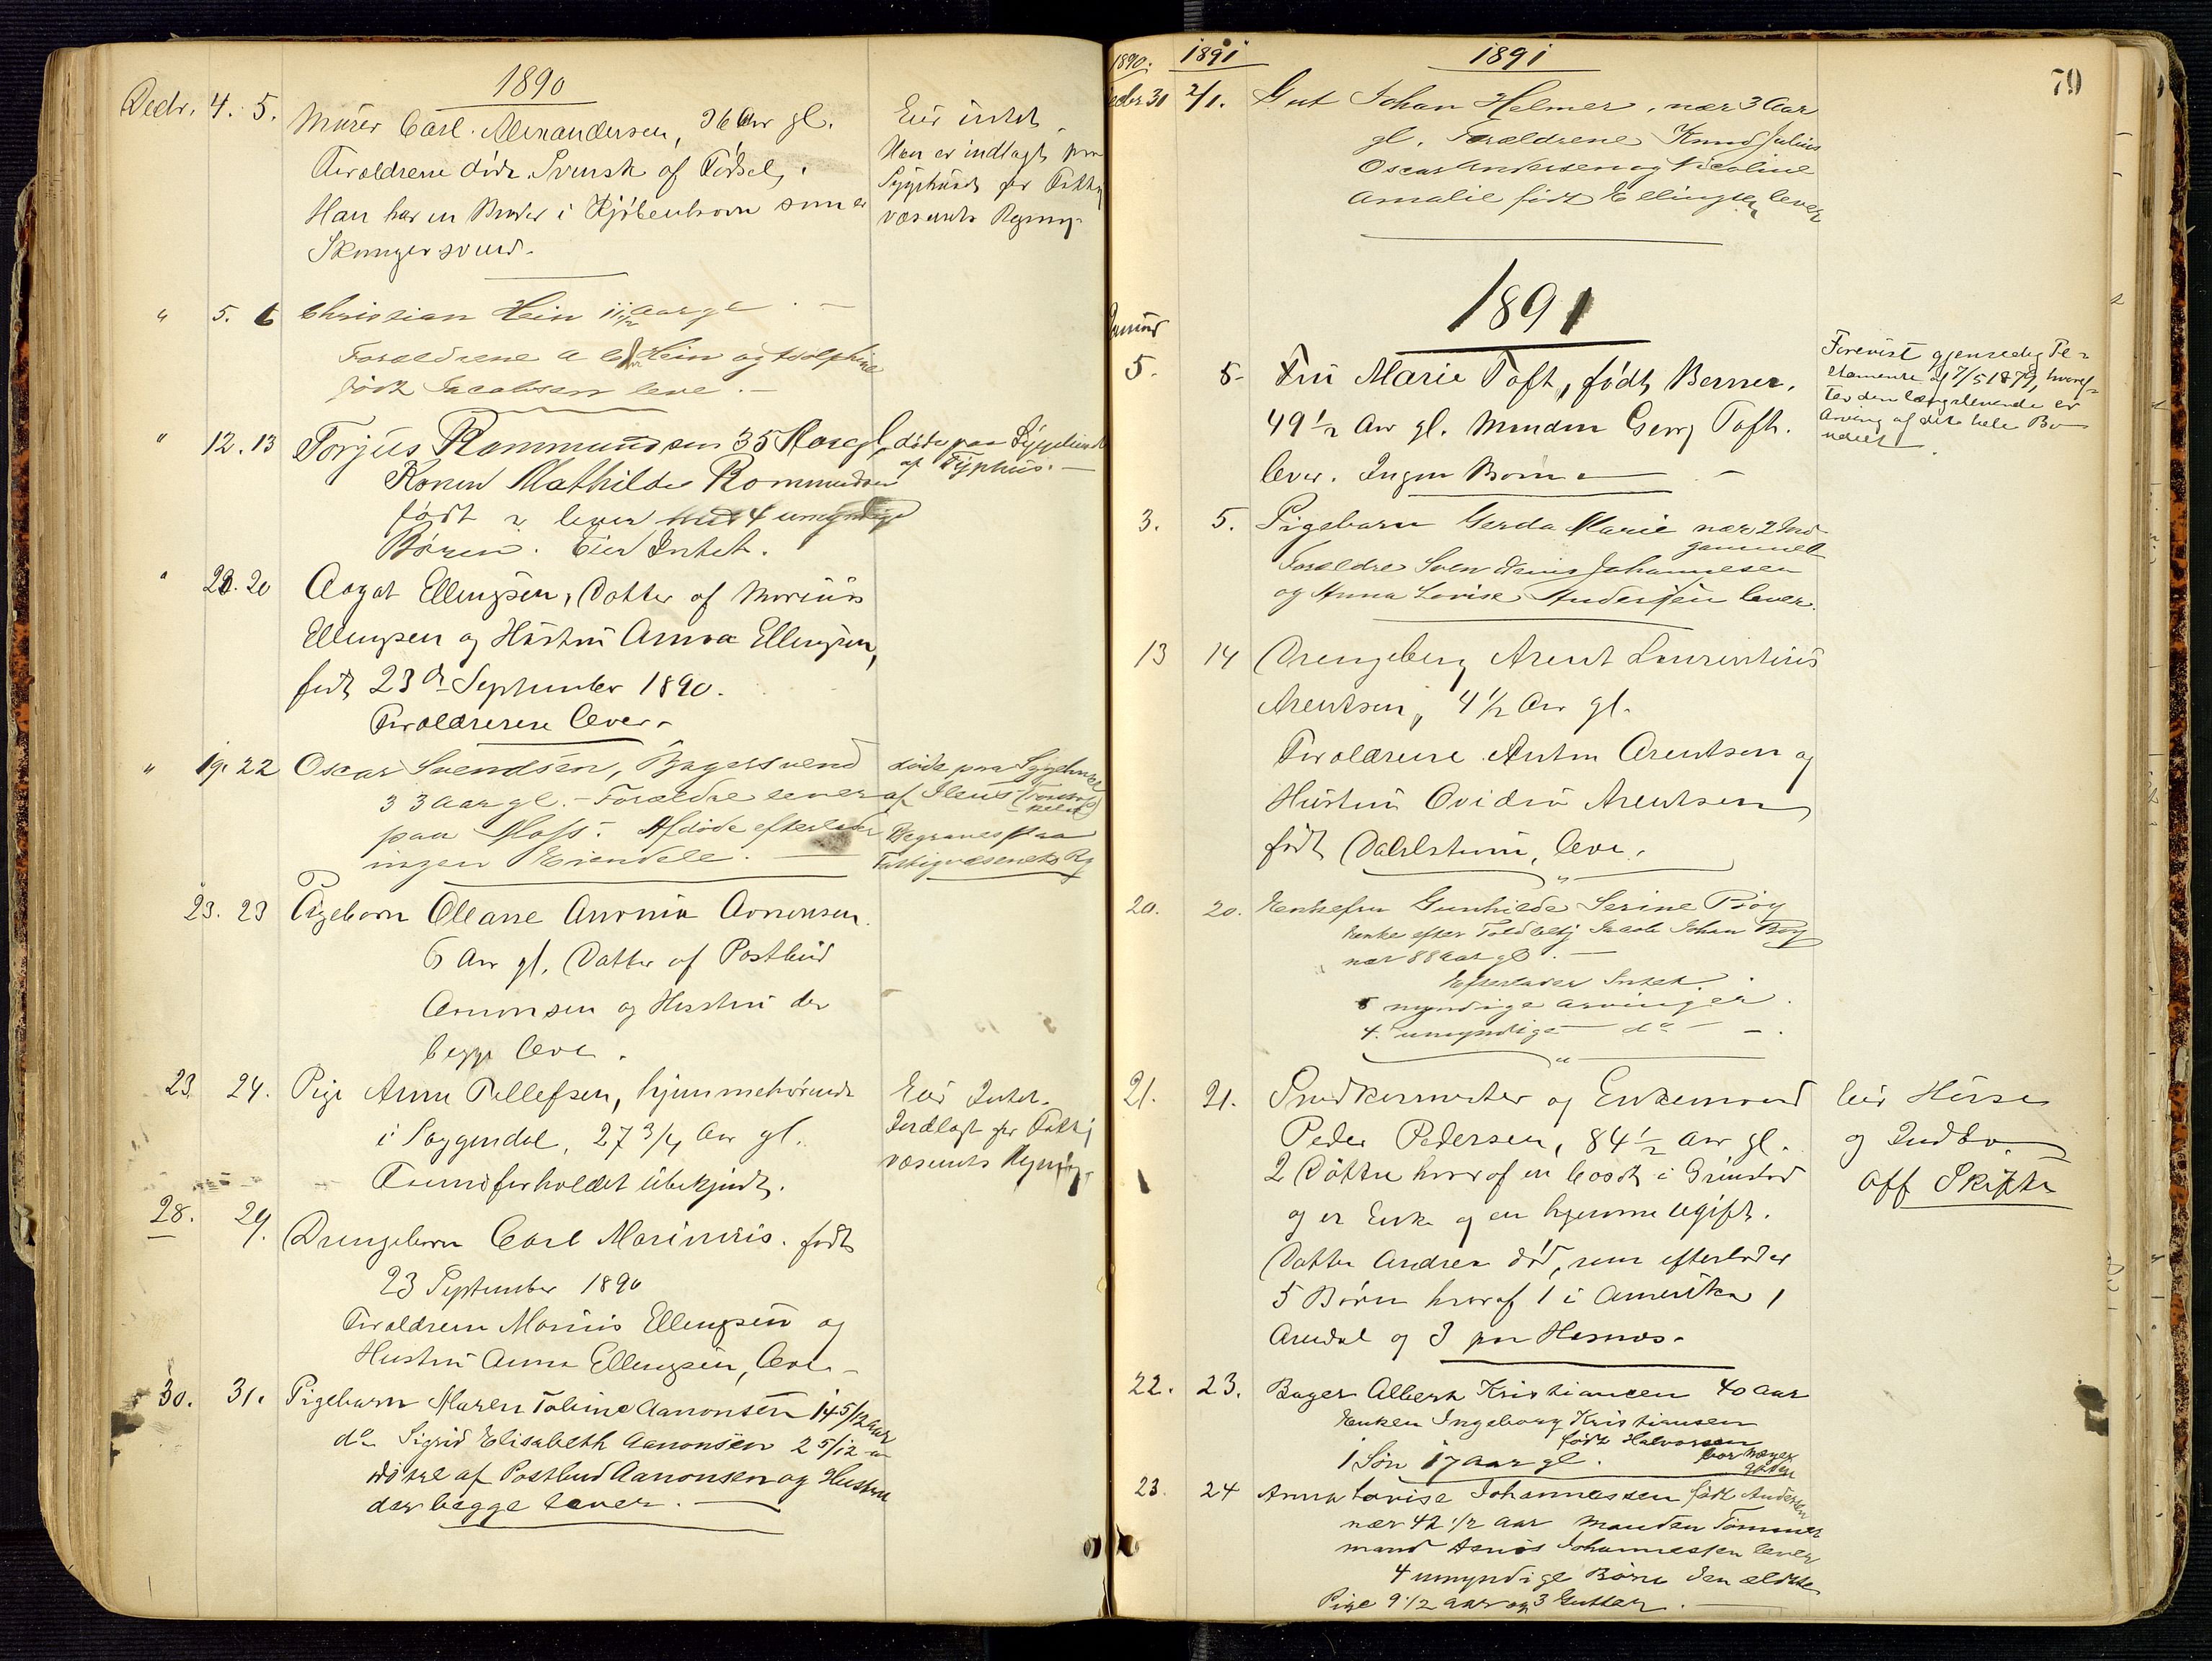 1890
Decbr. 4. 5. Murer Carl Alexandersen, 36 Aar gl. Eier intet
Forældrene døde. Svensk af Fødsel, Han er indlagt paa
Han har en Broder i Kjøbenhavn som er Sygehuset for Fattig
væsenets Regning
svend.
" 5. 6 Christian Hein 11 1/2 Aar gl
Forældrene A C Hein og
født Jacobsen leve. -
" 12. 13 Torjus Rommundsen 35 Aar gl, døde paa Sygehuset
Konen Mathilde Rommundsen af Typhus. -
født ? lever med 4 umyndige
Børn. Eier Intet.
" 20. 20 Aagot Ellingsen, Datter af Marius
Ellingsen og Hustru Anna Ellingsen,
født 23de September 1890.
Forældrene lever -
" 19. 22 Oscar Svendsen, Bagersvend døde paa Sygehuset
33 Aar gl. - Forældre lever af Ileus
paa Moss. Afdøde efterlader Begraves paa
ingen Eiendele. Fattigvæsenets Rg
23. 23 Pigebarn Olianne Aanonsen
6 Aar gl. Datter af Postbud
Aanonsen og Hustru der
begge leve.
23. 24. Pige Anne Tellefsen, hjemmehørende Eier Intet.
i Soggendal, 27 3/4 Aar gl. Indlagt for Fattig
forholdet ubekjendt. væsenets Regning.
28. 29. Drengebarn Carl Marinius. født
23 September 1890
Forældrene Marius Ellingsen og
Hustru Anna Ellingsen, leve -
30. 31. Pigebarn Maren Tobine Aanonsen 14 5/12 aar
do Sigrid Elisabeth Aanonsen 2 5/12 -
døtre af Postbud Aanonsen og Hustru
der begge lever. -
1890. 1891 1891 79
Decbr 31 2/1. Gut Johan Helmer, nær 3 Aar
gl. Forældrene Knud Julius
Oscar Andersen og Nicoline
Amalie født Ellingsen lever
1891
Januar
5. 5. Fru Marie Toft, født Berner, Forevist gjensidig Te-
49 1/2 Aar gl. Manden Georg Toft. stamente af 7/5 1879, hvoref-
lever. Ingen Børn - ter den længstlevende er
Arving af det hele Bo
udeelt
3. 5. Pigebarn Gerda Marie nær 2 Md
gammelt
Forældre Sven Johannesen
og Anna Lovise Andersen lever.
13 14 Drengebarn Arent Laurentius
Arentsen, 4 1/2 Aar gl.
Forældrene Anton Arentsen og
Hustru Ovidia Arentsen
født Dahlstrøm, leve.
20. 20. Enkefru Gunhilde Serine Bøy
Enke efter Toldbetj Jacob Johan Bøy
nær 88 Aar gl. -
Efterlader Intet.
5 myndige Arvinger.
4. umyndige - do - -.
21. 21. Snedkermester og Enkemand Eier Huse
Peder Pedersen, 84 1/2 Aar gl. og Indbo
2 Døttre hvoraf en bosat i Grimstad Off Skifte
og er Enke og en hjemme ugift.
Datter Andrea død, som efterlader
5 Børn hvoraf 1 i Amerika, 1
Arendal og 3 paa Hisnæs.
22. 23. Bager Albert Kristiansen 40 Aar
Enken Ingeborg Kristiansen
født Halvorsen
1 Søn 17 Aar gl.
23. 24 Anna Lovise Johannessen født Andersen
nær 42 1/2 Aar Manden Tømmer
mand Johannessen lever
4 umyndige Børn den ældste
Pige 9 1/2 aar og 3 Gutter. -